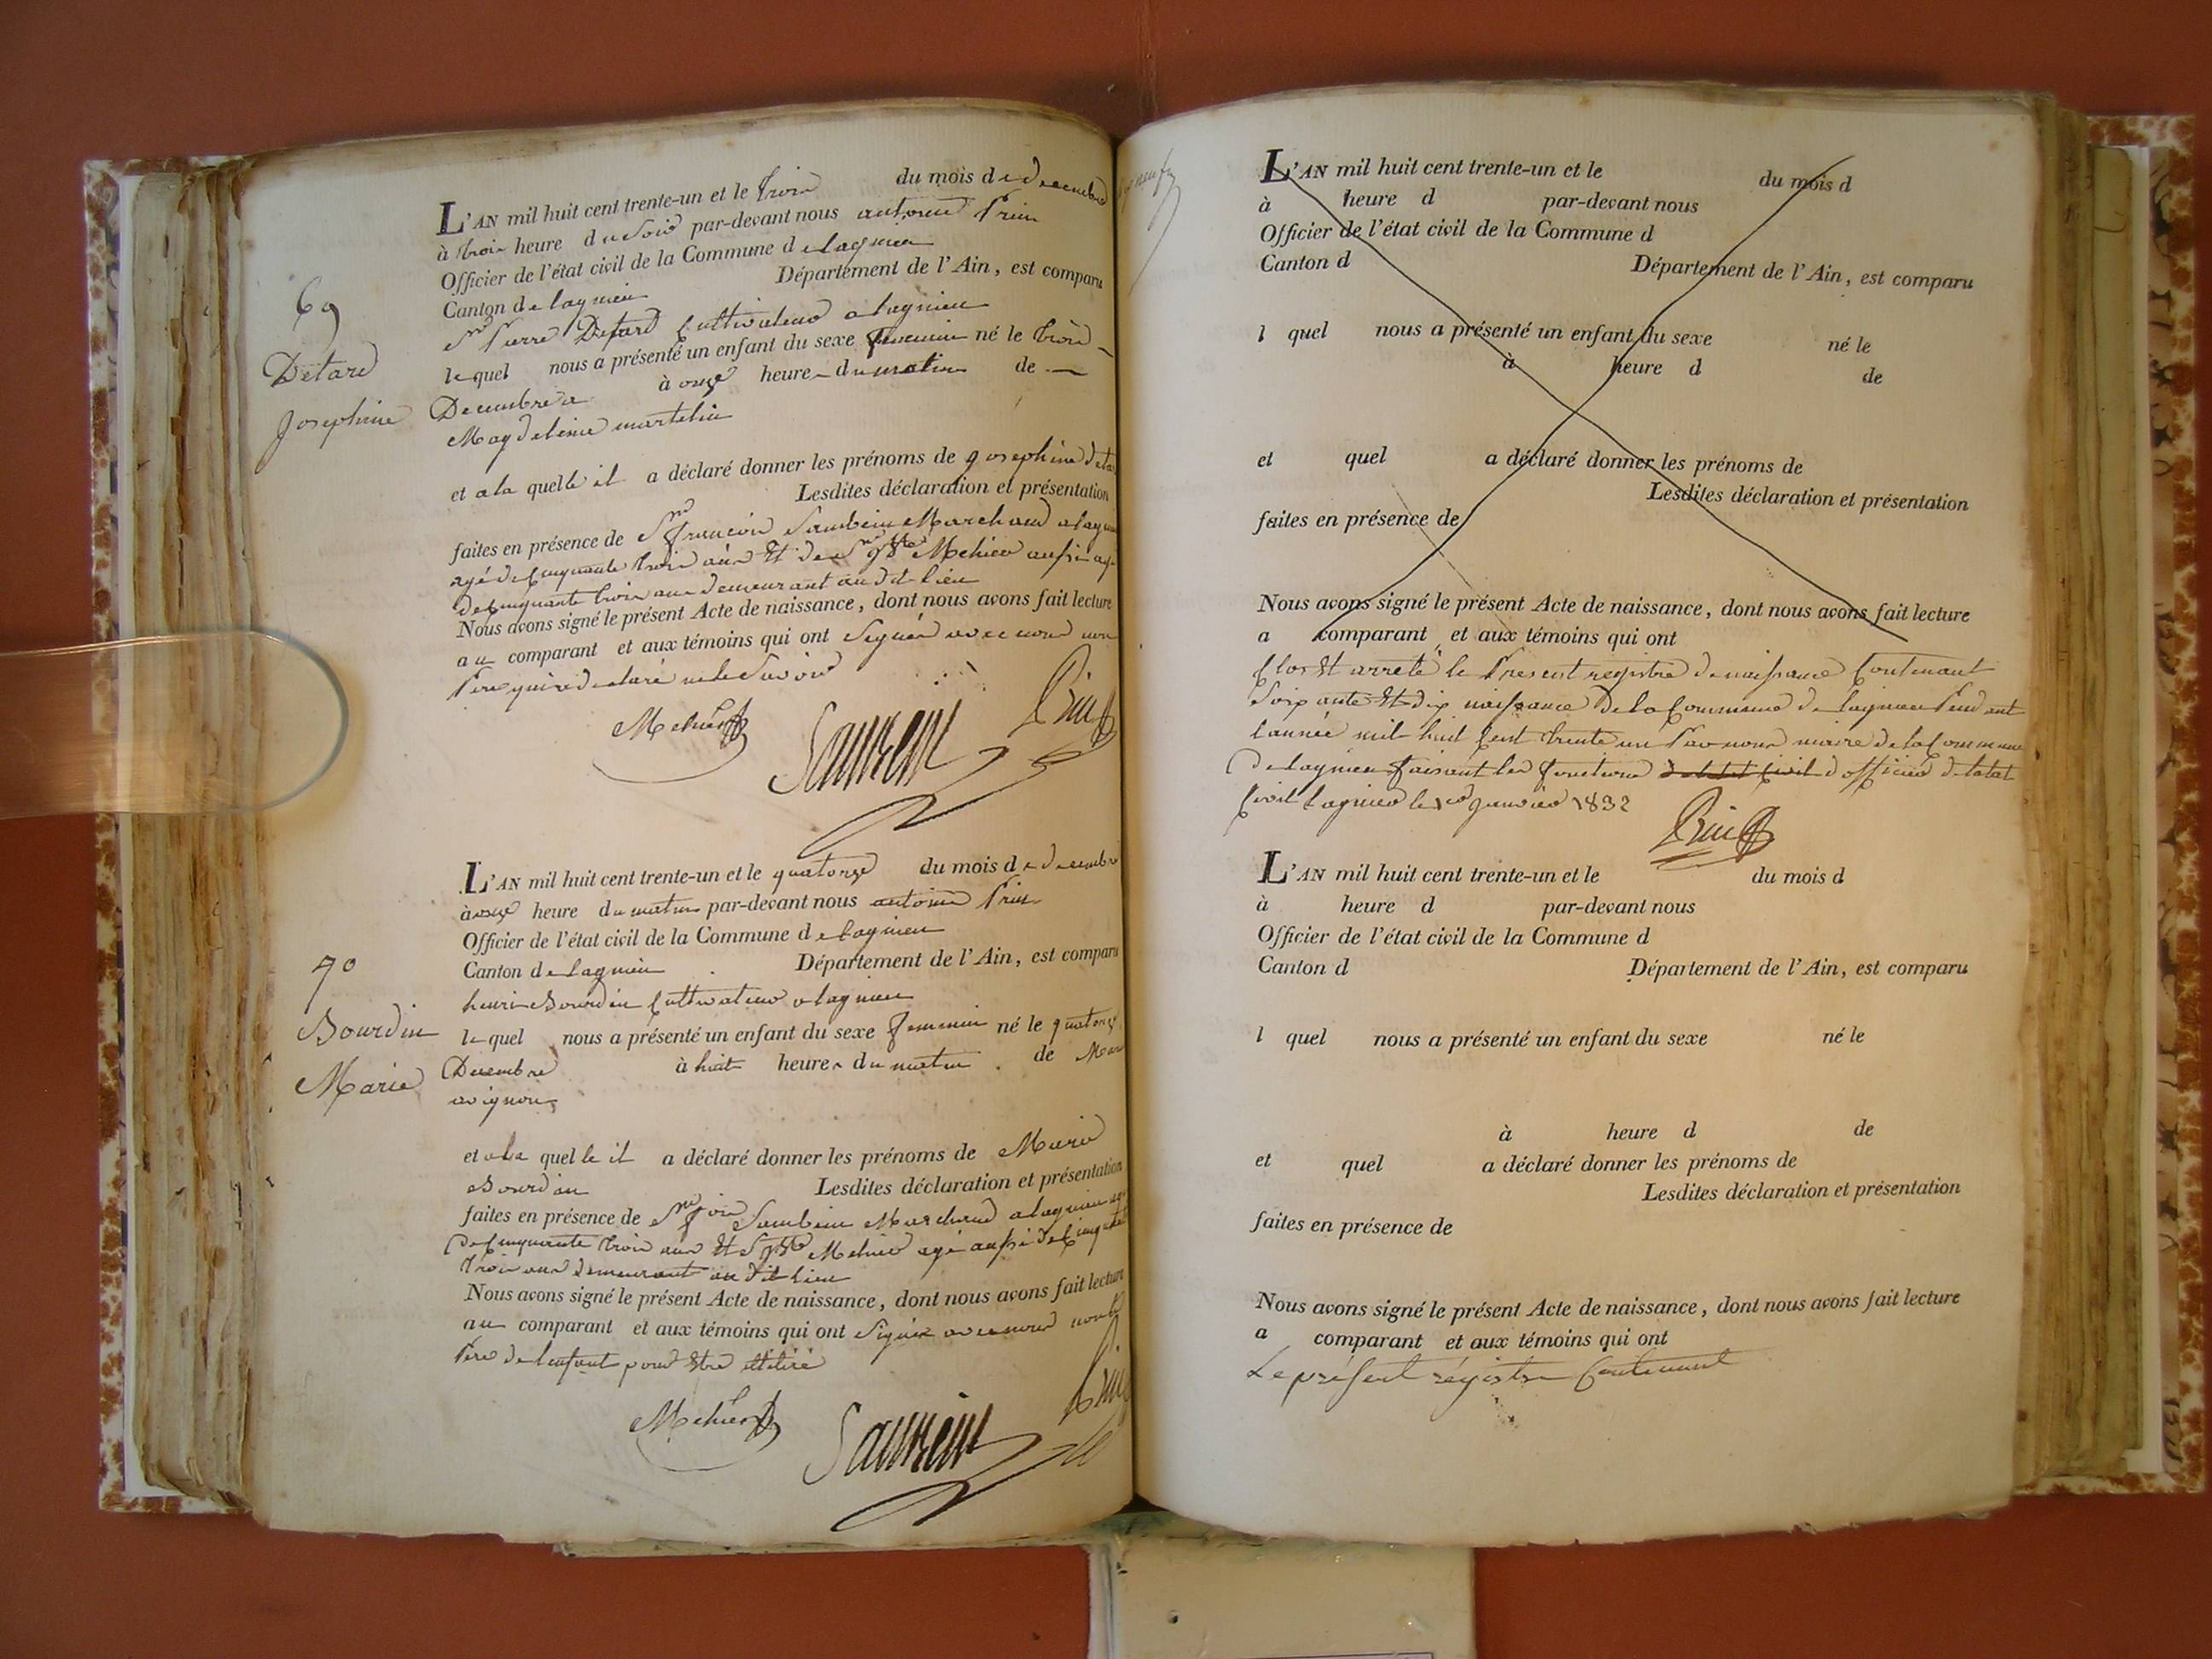 69
Detard
Josephine
L'AN mil huit cent trente-un et le trois du mois de decembre
à trois heure du Soir par-devant nous antoine Prin
Officier de l'état civil de la Commune de lagnieu
Canton de lagnieu Département de l'Ain, est comparu
Sr Pierre Detard Cultivateur a lagnieu
lequel nous a présenté un enfant du sexe femenin né le trois
Decembre a à onze heures du matin de
Magdeleine martelin
et a la quelle il a déclaré donner les prénoms de josephine detard
Lesdites déclaration et présentation
faites en présence de Sr françois Saunbein Marchand a lagnieu
agé de Cinquante trois ans Et de Sr jBte Mehier aussi agé
de Cinquante trois ans demeurant au dit lieu
Nous avons signé le présent Acte de naissance, dont nous avons fait lecture
au comparant et aux témoins qui ont Signés avec nous non
Pere qui a declaré ne le Savoir
Mehier Prin
70
Bourdin
Marie
L'AN mil huit cent trente-un et le quatorze du mois de decembre
à onze heure du matin par-devant nous antoine Prin
Officier de l'état civil de la Commune de lagnieu
Canton de lagnieu Département de l'Ain, est comparu
henri Bourdin Cultivateur a lagnieu
lequel nous a présenté un enfant du sexe femenin né le quatorze
Decembre à huit heures du matin de Marie
avignon
et a la quelle il a déclaré donner les prénoms de Marie
Bourdin Lesdites déclaration et présentation
faites en présence de Sr fois Saunbein Marchand a lagnieu agé
de Cinquante trois ans Et Sr jBte Mehier agé aussi de Cinquante
trois ans demeurant au dit lieu
Nous avons signé le présent Acte de naissance, dont nous avons fait lecture
au comparant et aux témoins qui ont Signés avec nous non le
Pere de lenfant pour Etre illitiré
Mehier Prin
L'AN mil huit cent trente-un et le du mois d
à heure d par-devant nous
Officier de l'état civil de la Commune d
Canton d Département de l'Ain, est comparu
l quel nous a présenté un enfant du sexe né le
à heure d de
et quel a déclaré donner les prénoms de
Lesdites déclaration et présentation
faites en présence de
Nous avons signé le présent Acte de naissance, dont nous avons fait lecture
a comparant et aux témoins qui ont
Clos Et arreté le Present registre de naissance Contenant
Soixante Et dix naissance De la Commune de lagnieu Pendant
lannée mil huit Cent trente un Par nous maire de la Commune
De lagnieu faisant les fonctions de letat Civil d'officier de letat
Civil lagnieu le 1er janvier 1832
Prin
L'AN mil huit cent trente-un et le du mois d
à heure d par-devant nous
Officier de l'état civil de la Commune d
Canton d Département de l'Ain, est comparu
l quel nous a présenté un enfant du sexe né le
à heure d de
et quel a déclaré donner les prénoms de
Lesdites déclaration et présentation
faites en présence de
Nous avons signé le présent Acte de naissance, dont nous avons fait lecture
a comparant et aux témoins qui ont
Le présent régistre Contenant